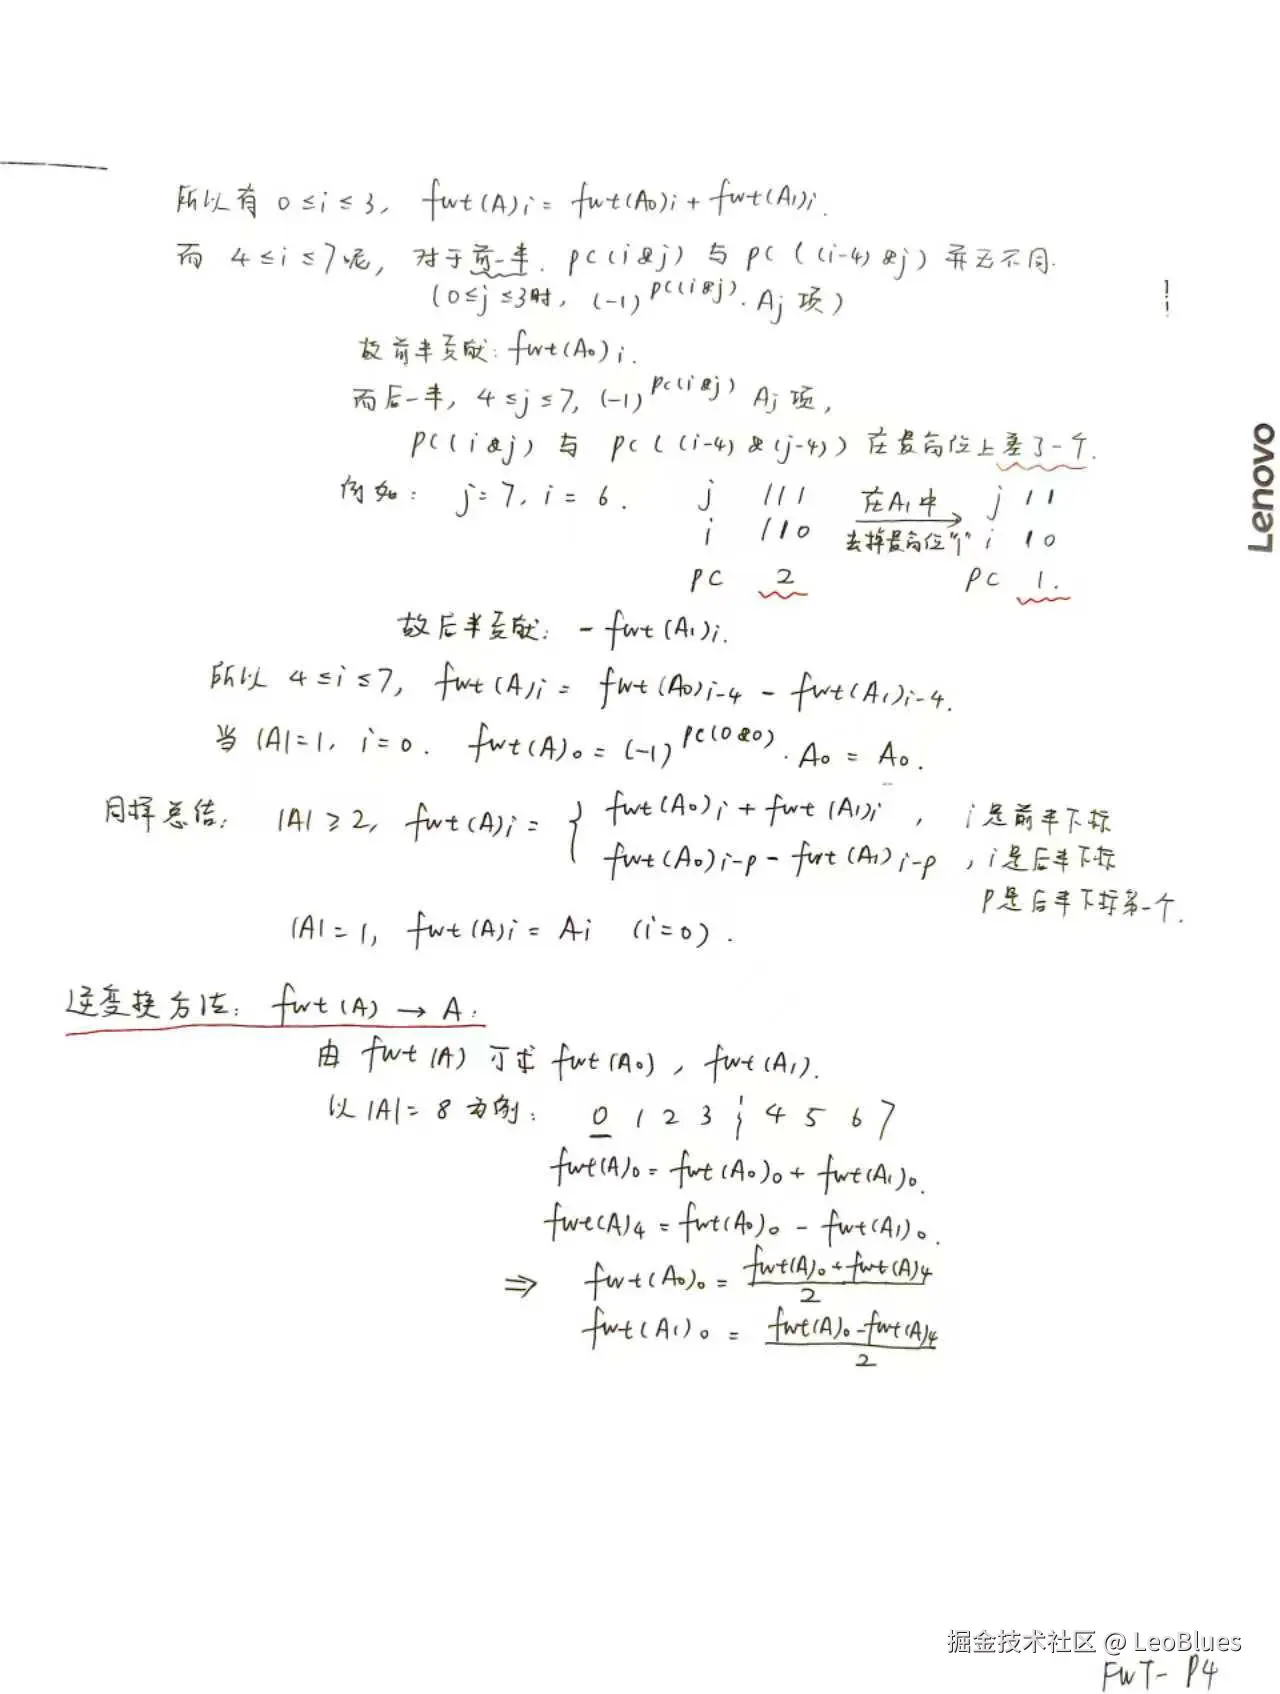 所以有 0≤i≤3, fwt(A)i = fwt(A0)i + fwt(A1)i.
而 4≤i≤7呢, 对于前一半. pc(i&j) 与 pc((i-4)&j) 并无不同.
(0≤j≤3时, (-1)^pc(i&j)·Aj 项)
故前半贡献: fwt(A0)i.
而后一半, 4≤j≤7, (-1)^pc(i&j) Aj 项,
pc(i&j) 与 pc((i-4)&(j-4)) 在最高位上差了一个.
例如: j=7, i=6. j 111 在A1中 j 11
i 110 去掉最高位"1" i 10
PC 2 PC 1.
故后半贡献: -fwt(A1)i.
所以 4≤i≤7, fwt(A)i = fwt(A0)i-4 - fwt(A1)i-4.
当 |A|=1, i=0. fwt(A)0 = (-1)^pc(0&0)·A0 = A0.
同样总结: |A|≥2, fwt(A)i = { fwt(A0)i + fwt(A1)i , i是前半下标
fwt(A0)i-p - fwt(A1)i-p , i是后半下标
p是后半下标第一个.
|A|=1, fwt(A)i = Ai (i=0).
逆变换方法: fwt(A) → A:
由 fwt(A) 可求 fwt(A0), fwt(A1).
以 |A|=8 为例: 0 1 2 3 ¦ 4 5 6 7
fwt(A)0 = fwt(A0)0 + fwt(A1)0.
fwt(A)4 = fwt(A0)0 - fwt(A1)0.
⇒ fwt(A0)0 = (fwt(A)0 + fwt(A)4)/2
fwt(A1)0 = (fwt(A)0 - fwt(A)4)/2
Lenovo
掘金技术社区 @ LeoBlues
FWT- P4